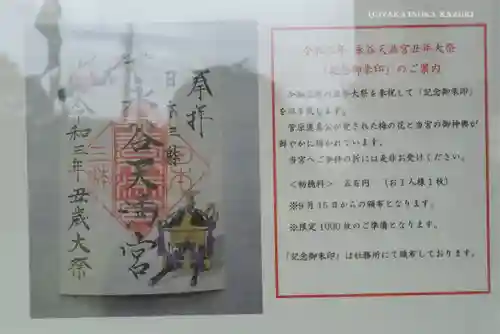 奉拝
日本三躰
永谷天満宮
令和三年 丑歳大祭
令和三年 永谷天満宮丑年大祭
「記念御朱印」のご案内
令和三年の丑年大祭を奉祝して「記念御朱印」
を頒布致します。
菅原道真公が愛された梅の花と当宮の御神輿が
鮮やかに描かれています。
当宮へご参拝の折には是非お受けください。
<初穂料> 五百円 (お1人様1枚)
※9月15日からの頒布となります。
※限定1000枚のご準備となります。
「記念御朱印」は社務所にて頒布しております。